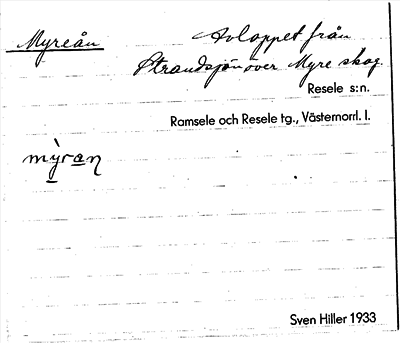 Myreån
Avloppet från
Strandsjön över Myre skog.
Resele s:n.
Ramsele och Resele tg., Västernorrl. l.
mỳran
Sven Hiller 1933